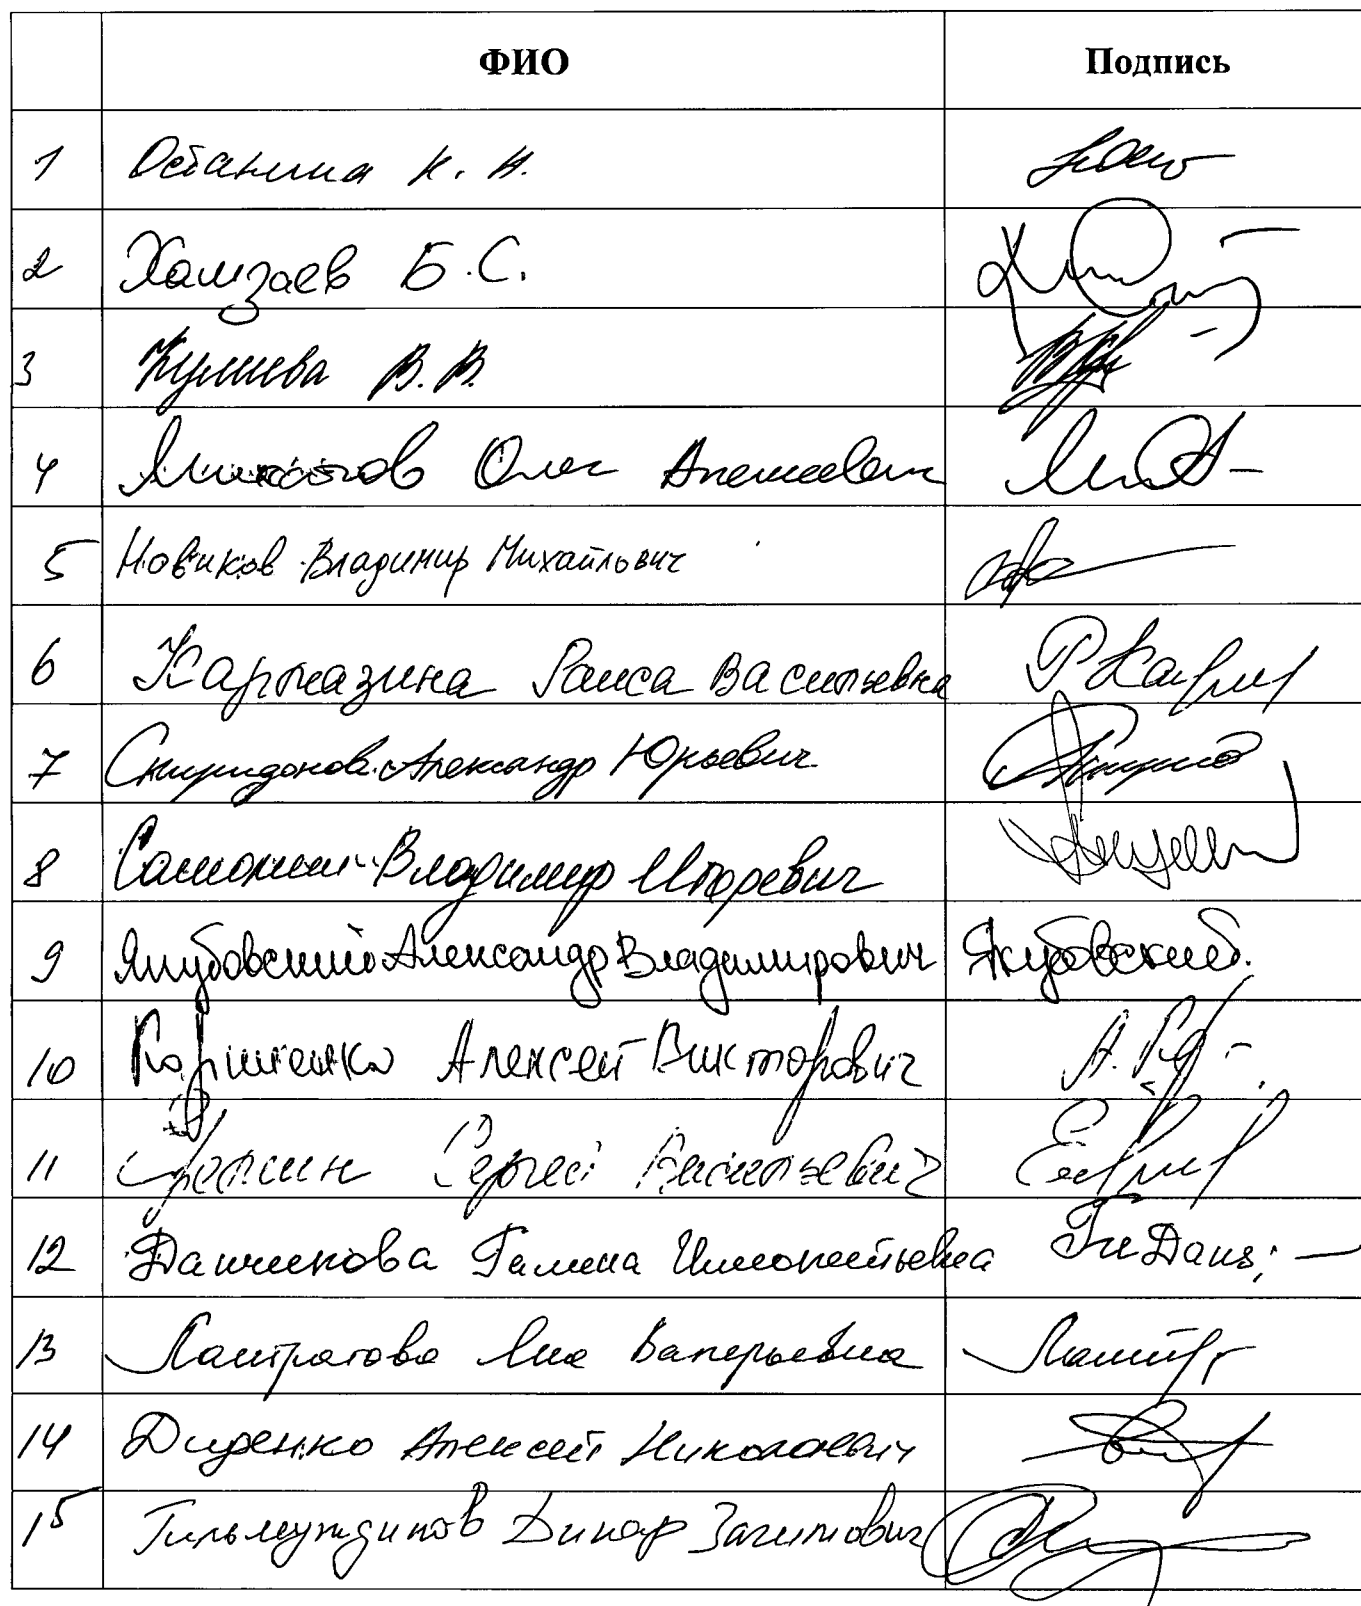 ФИО Подпись
1 Останина Н. А.
2 Хамзаев Б. С.
3 В. В.
4 Олег Алексеевич
5 Новиков Владимир Михайлович
6 Кармазина Раиса Васильевна
7 Спиридонов Александр Юрьевич
8 Самокиш Владимир Игоревич
9 Якубовский Александр Владимирович Якубовский
10 Корниенко Алексей Викторович
11 Сергей Васильевич
12 Данчикова Галина Иннокентьевна
13 Лантратова Яна Валерьевна
14 Диденко Алексей Николаевич
15 Гильмутдинов Динар Загитович